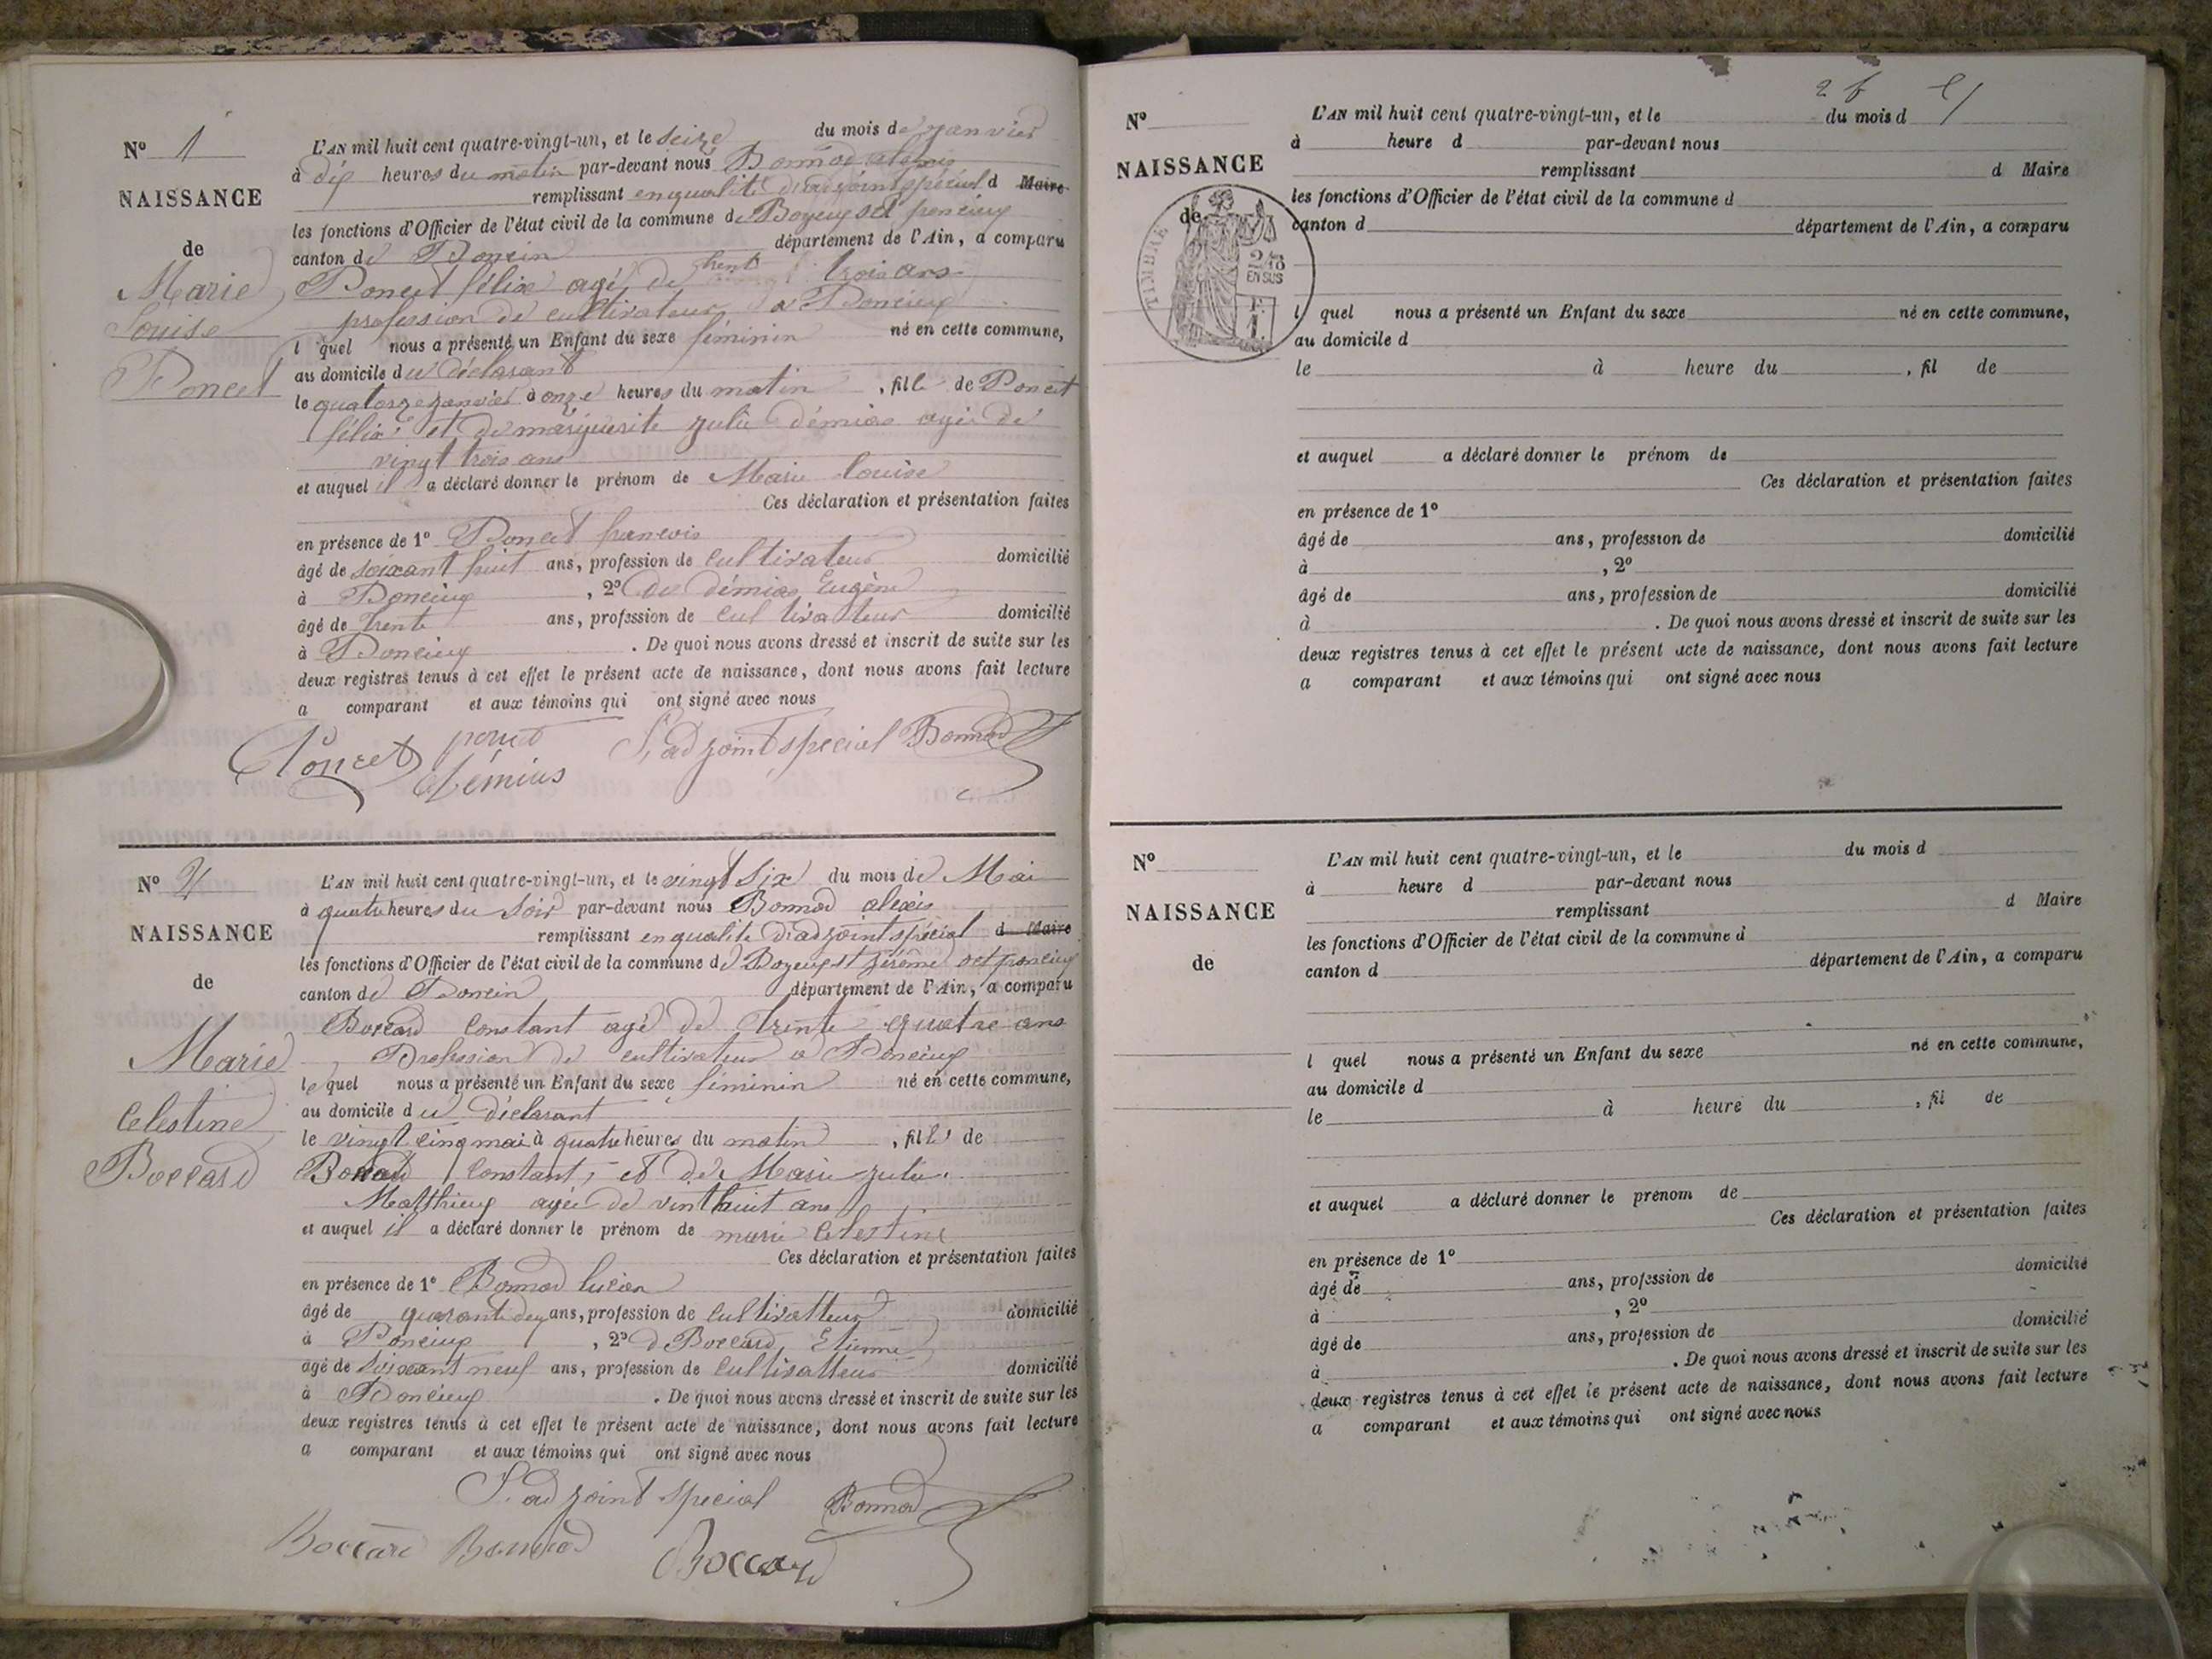 N° 1
NAISSANCE
de
Marie
Louise
Poncet
L'AN mil huit cent quatre-vingt-un, et le seize du mois de janvier
à dix heures du matin par-devant nous Bonnod alexis
remplissant en qualité d'adjoint spécial d Maire
les fonctions d'Officier de l'état civil de la commune de Boyeux
canton de Poncin département de l'Ain, a comparu
Poncet félix agé de trent trois ans
profession de cultivateur a Poncieux
l quel nous a présenté un Enfant du sexe féminin né en cette commune,
au domicile du déclarant
le quatorze janvier à onze heures du matin , fille de Poncet
félix et de marguerite julie démias agée de
vingt trois ans
et auquel il a déclaré donner le prénom de Marie louise
Ces déclaration et présentation faites
en présence de 1° Poncet francois
âgé de soixant huit ans, profession de cultivateur domicilié
à Poncieux , 2° démias Eugène
âgé de trente ans, profession de cultivateur domicilié
à Poncieux . De quoi nous avons dressé et inscrit de suite sur les
deux registres tenus à cet effet le présent acte de naissance, dont nous avons fait lecture
a comparant et aux témoins qui ont signé avec nous
Poncet poncet L'adjoint special Bonnod
Démias
N° 2
NAISSANCE
de
Marie
Celestine
Boccard
L'AN mil huit cent quatre-vingt-un, et le vingt six du mois de Mai
à quatre heures du soir par-devant nous Bonnod alexis
remplissant en qualité d'adjoint spécial d Maire
les fonctions d'Officier de l'état civil de la commune de Boyeux st jérôme
canton de Poncin département de l'Ain, a comparu
Boccard Constant agé de trente quatre ans
Profession de cultivateur a Poncieux
lequel nous a présenté un Enfant du sexe féminin né en cette commune,
au domicile du déclarant
le vingt cinq mai à quatre heures du matin , fille de
Boccard Constant, et de Marie julie
Matthieux agée de vint huit ans
et auquel il a déclaré donner le prénom de marie Celestine
Ces déclaration et présentation faites
en présence de 1° Bonnod lucien
âgé de quarante deux ans, profession de Cultivatteur domicilié
à Poncieux , 2° d Boccard Etienne
âgé de soixant neuf ans, profession de Cultivatteur domicilié
à Poncieux . De quoi nous avons dressé et inscrit de suite sur les
deux registres tenus à cet effet le présent acte de naissance, dont nous avons fait lecture
a comparant et aux témoins qui ont signé avec nous
L'adjoint special Bonnod
Boccard Bonnod Boccard
2 f
N°
NAISSANCE
de
TIMBRE
2/10
EN SUS
L'AN mil huit cent quatre-vingt-un, et le du mois d
à heure d par-devant nous
remplissant d Maire
les fonctions d'Officier de l'état civil de la commune d
canton d département de l'Ain, a comparu
l quel nous a présenté un Enfant du sexe né en cette commune,
au domicile d
le à heure du , fil de
et auquel a déclaré donner le prénom de
Ces déclaration et présentation faites
en présence de 1°
âgé de ans, profession de domicilié
à , 2°
âgé de ans, profession de domicilié
à . De quoi nous avons dressé et inscrit de suite sur les
deux registres tenus à cet effet le présent acte de naissance, dont nous avons fait lecture
a comparant et aux témoins qui ont signé avec nous
N°
NAISSANCE
de
L'AN mil huit cent quatre-vingt-un, et le du mois d
à heure d par-devant nous
remplissant d Maire
les fonctions d'Officier de l'état civil de la commune d
canton d département de l'Ain, a comparu
l quel nous a présenté un Enfant du sexe né en cette commune,
au domicile d
le à heure du , fil de
et auquel a déclaré donner le prénom de
Ces déclaration et présentation faites
en présence de 1°
âgé de ans, profession de domicilié
à , 2°
âgé de ans, profession de domicilié
à . De quoi nous avons dressé et inscrit de suite sur les
deux registres tenus à cet effet le présent acte de naissance, dont nous avons fait lecture
a comparant et aux témoins qui ont signé avec nous